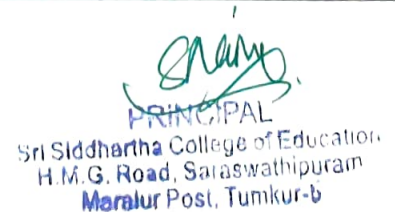 PRINCIPAL
Sri Siddhartha College of Education
H.M.G. Road, Saraswathipuram
Maralur Post, Tumkur-6